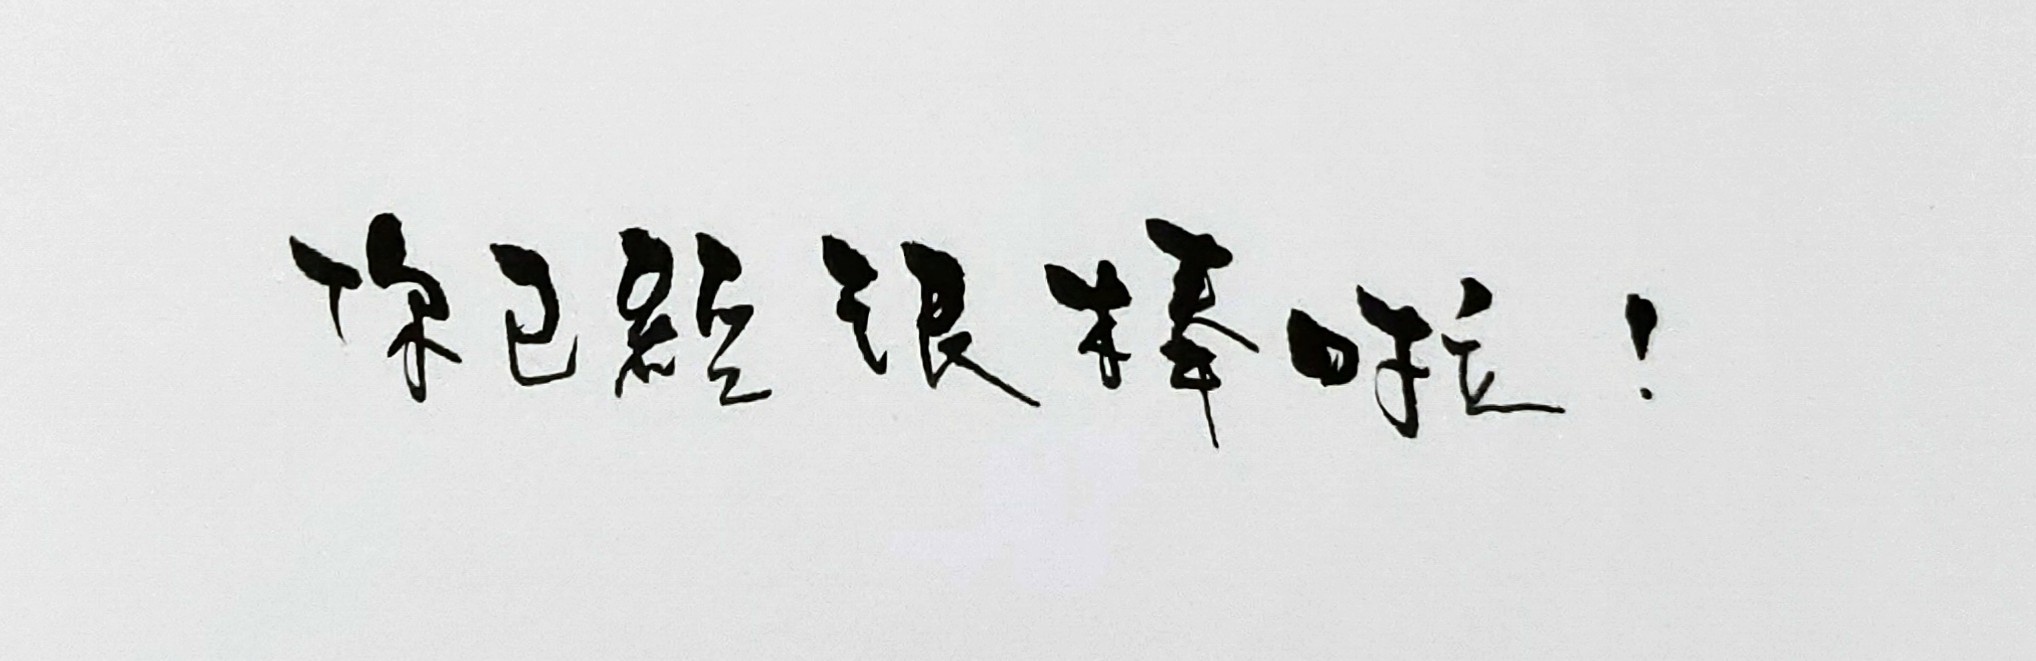 你已經很棒啦！